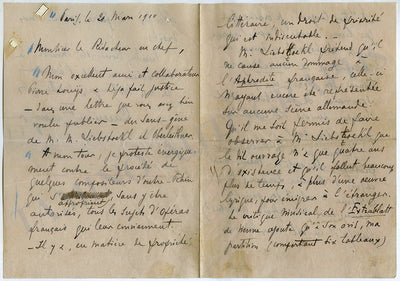 "Paris, le 20 Mars 1910
Monsieur le Rédacteur en chef,
"Mon excellent ami et collaborateur
Pierre Louÿs a déjà fait justice
— dans une lettre que vous avez bien
voulu publier — du sans-gêne
de M. M. Liebstoeckl et
"A mon tour, je proteste énergique-
ment contre le procédé de
quelques compositeurs d'outre-Rhin
qui s'approprient, sans y être
autorisés, tous les sujets d'opéras
français qui leur conviennent.
— Il y a, en matière de propriété
littéraire, un droit de priorité
qui est indiscutable. —
M. Liebstoeckl prétend qu'il
ne cause aucun dommage à
l'Aphrodite française, celle-ci
n'ayant encore été représentée
sur aucune scène allemande.
Qu'il me soit permis de faire
observer à M. Liebstoeckl que
le dit ouvrage n'a que quatre ans
d'existence et qu'il fallut beaucoup
plus de temps, à plus d'une œuvre
lyrique, pour émigrer à l'étranger.
Le critique musical de l'Extrablatt
de Vienne ajoute qu'à son avis, ma
partition (comportant six tableaux)